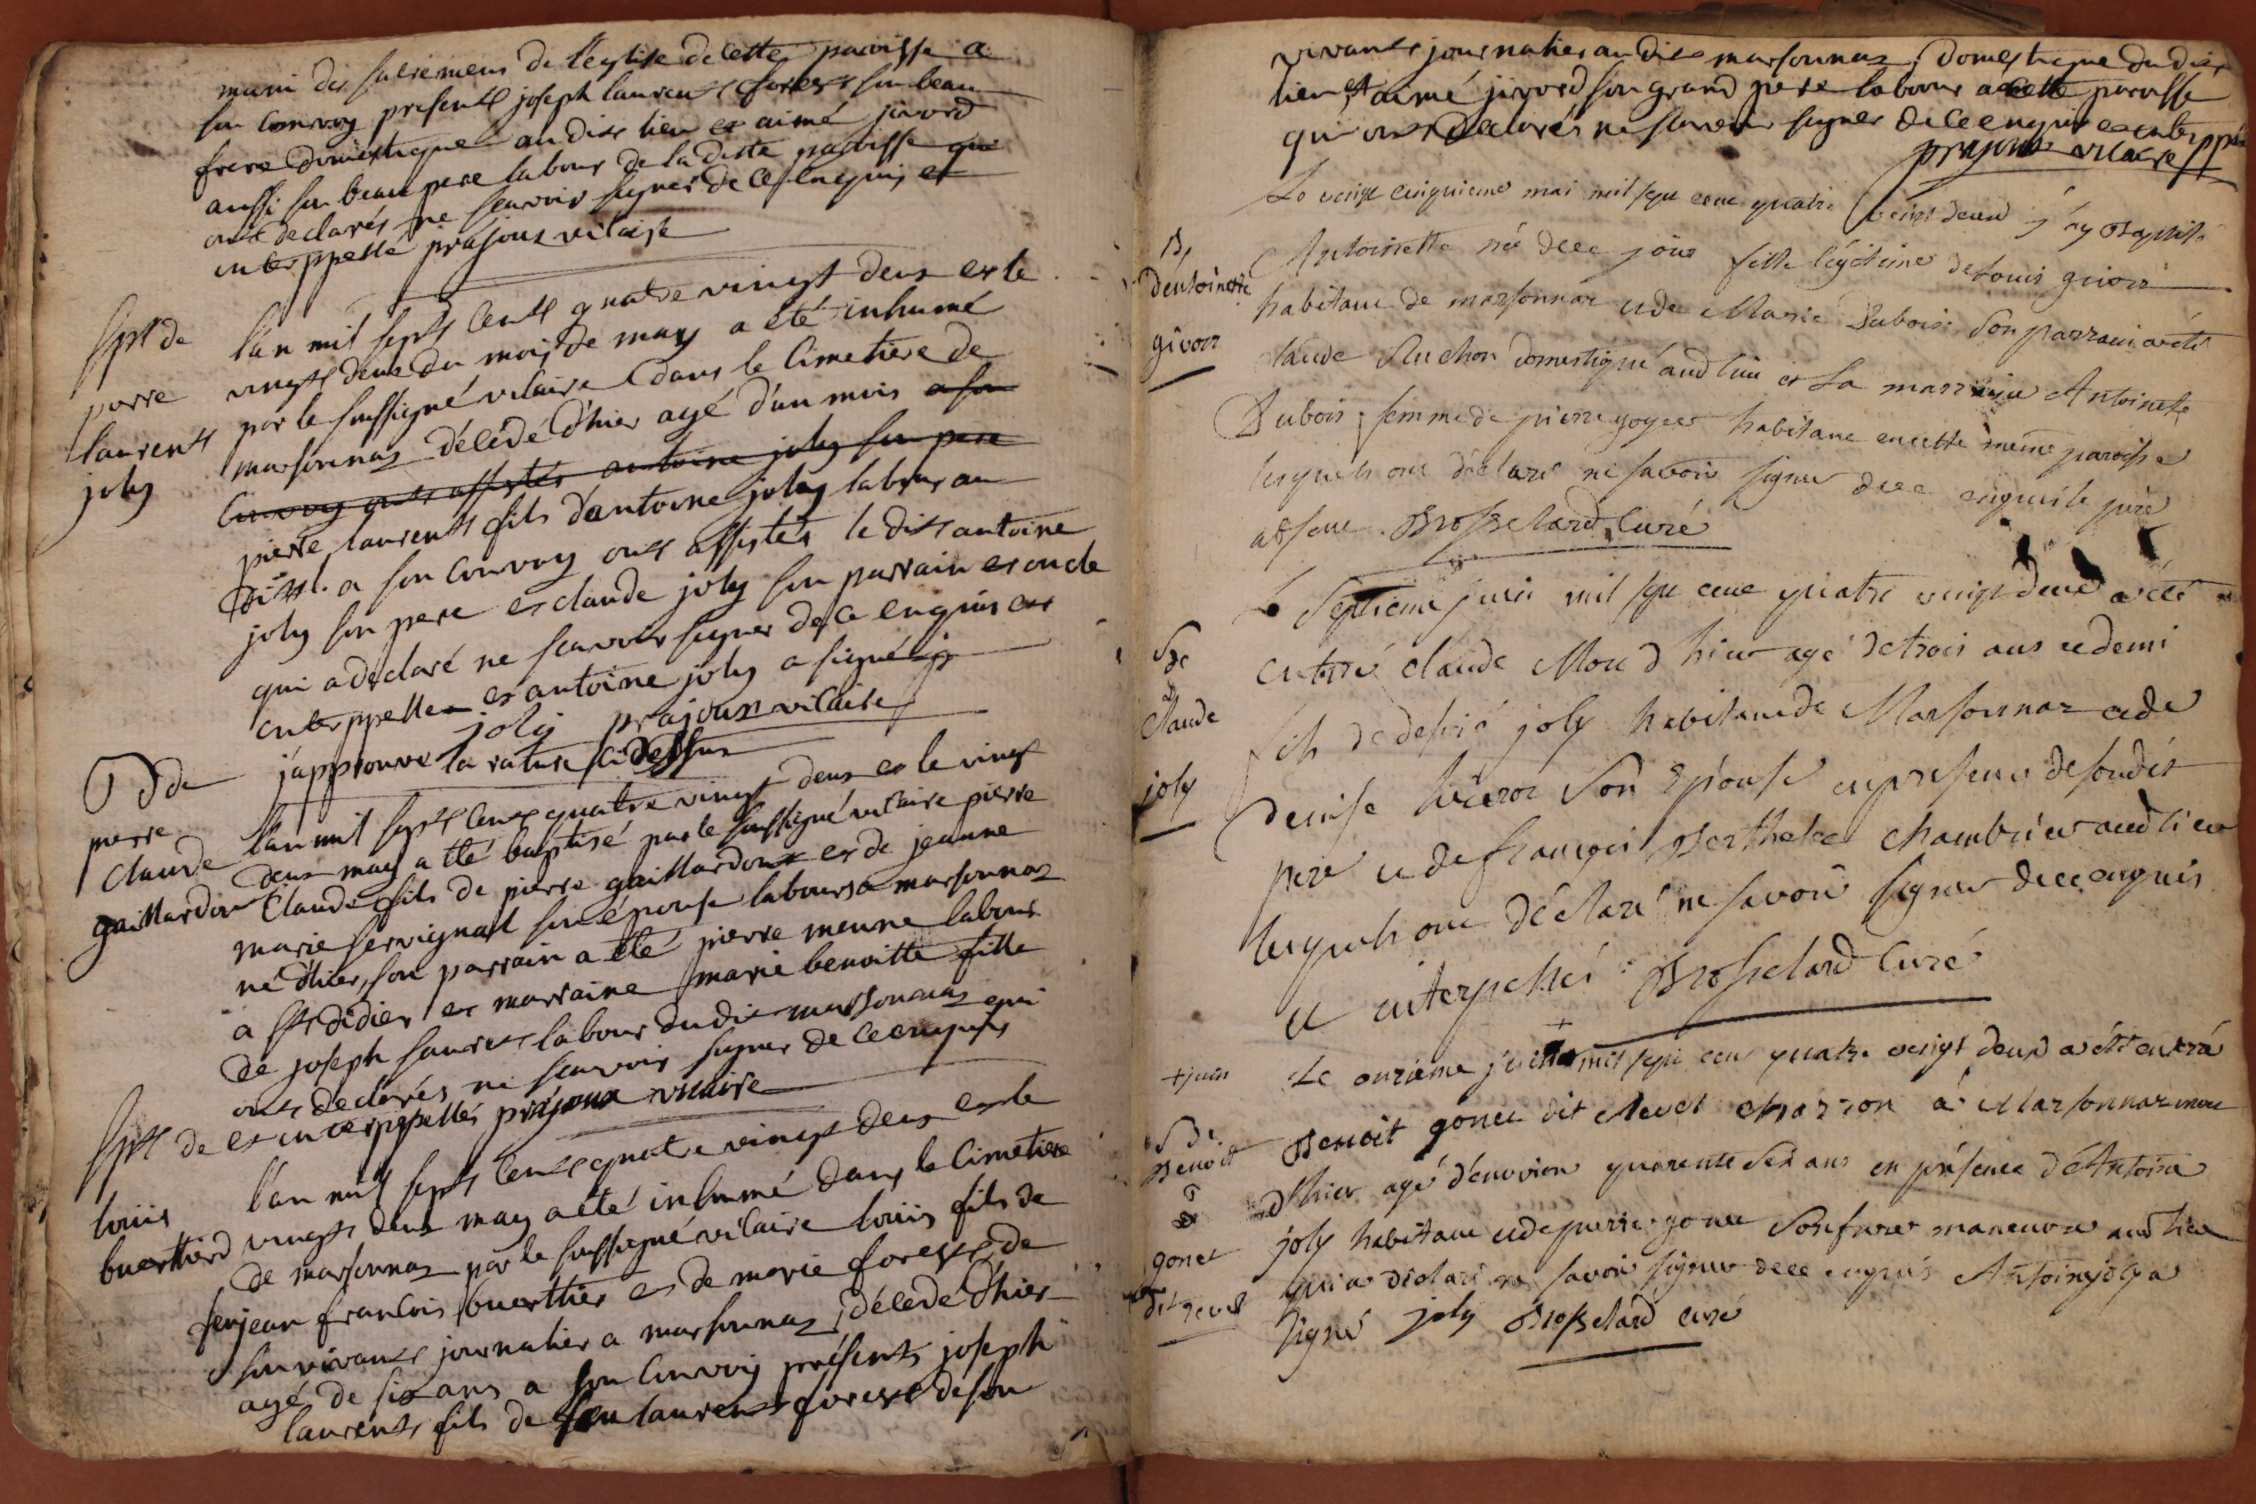 muni des sacremens de l'eglise de cette paroisse a
son convoy presents joseph laurent forest son beau
frere domestique audit lieu et aimé jivord
aussi son beau pere labour de la ditte paroisse qui
ont declarés ne scavoir signer de ce enquis et
interppellé préjoux vicaire
Spt de
pierre
laurent
joly
l'an mil sept cent quatre vingt deux et le
vingt deux du mois de may a eté inhumé
par le soussigné vicaire dans le cimetiere de
marsonnas décédé d'hier agé d'un mois a son
convoy ont assistés antoine joly son pere
pierre laurent fils d'antoine joly labour au
dit l. a son convoy ont assistés le dit antoine
joly son pere et claude joly son parrain et oncle
qui a declaré ne scavoir signer de ce enquis et
interppellé et antoine joly a signé
joly préjoux vicaire
j'approuve la rature ci dessus
B de
pierre
claude
gaillardon
l'an mil sept cent quatre vingt deux et le vingt
deux may a eté baptisé par le soussigné vicaire pierre
claude fils de pierre gaillardon et de jeanne
marie servignat son épouse labours a marsonnas
né d'hier, son parrain a eté pierre meune labour
a st didier et marraine marie benoitte fille
de joseph laurent labour dudit marsonnas qui
ont declarés ne scavoir signer de ce enquis
et interppellés préjoux vicaire
Spt de
louis
buerthierd
l'an mil sept cent quatre vingt deux et le
vingt deux may a eté inhumé dans le cimetiere
de marsonnas par le soussigné vicaire louis fils de
feu jean francois buerthier et de marie forest de
son vivant journalier a marsonnas, décédé d'hier
agé de six ans a son convoy présents joseph
laurent fils de feu laurent forest de son
vivant journalier audit marsonnas, domestique dudit
lieu et aimé jivord son grand pere labour a cette paroisse
qui ont declarés ne scavoir signer de ce enquis et interppellés
préjoux vicaire
B,
d'entoinette
givors
Le vingt cinquieme mai mil sept cent quatre vingt deux j'ay Baptisé
Antoinette née de ce jour fille légitime de Louis givors
habitant de marsonnas et de Marie Dubois son parrain a été
claude Auchon domestique audt lieu et La marraine Antoinette
Dubois femme de pierre goyer habitant en cette même paroisse
lesquels ont déclaré ne savoir signer de ce enquis le père
absent. Brosselard Curé
S de
Claude
joly
Le Septieme juin mil sept cent quatre vingt deux a été
enterré claude Mort d'hier agé de trois ans et demi
fils de desiré joly habitant de Marsonnas et de
denise son Epouse en presence de sondit
pere et de françois Berthelet chambrier audt lieu
lesquels ont déclaré ne savoir signer de ce enquis
et interpellés Brosselard Curé
+ juin
S de
Benoit
gonet
dit clevet
Le onzieme + mil sept cent quatre vingt deux a été enterré
Benoit gonet dit clevet charron à Marsonnas mort
d'hier agé d'environ quarente six ans en présence d'Antoine
joly habitant et de pierre gonet son frere manoeuvre audt lieu
qui a déclaré ne savoir signer de ce enquis Antoine joly a
signé joly Brosselard curé